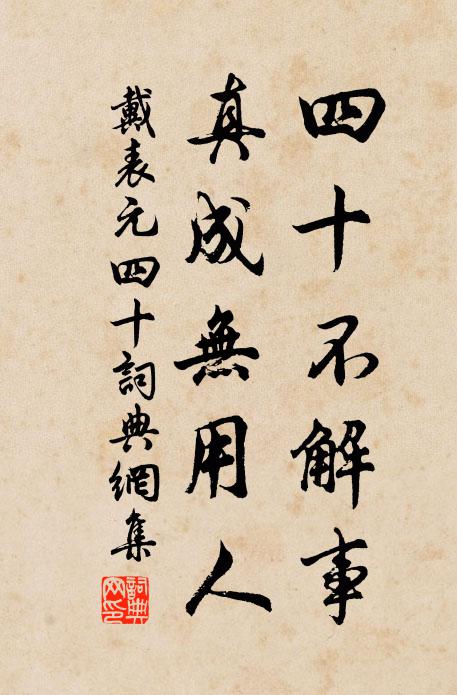 四十不解事
真成無用人
戴表元四十詞典網集
詞典网印